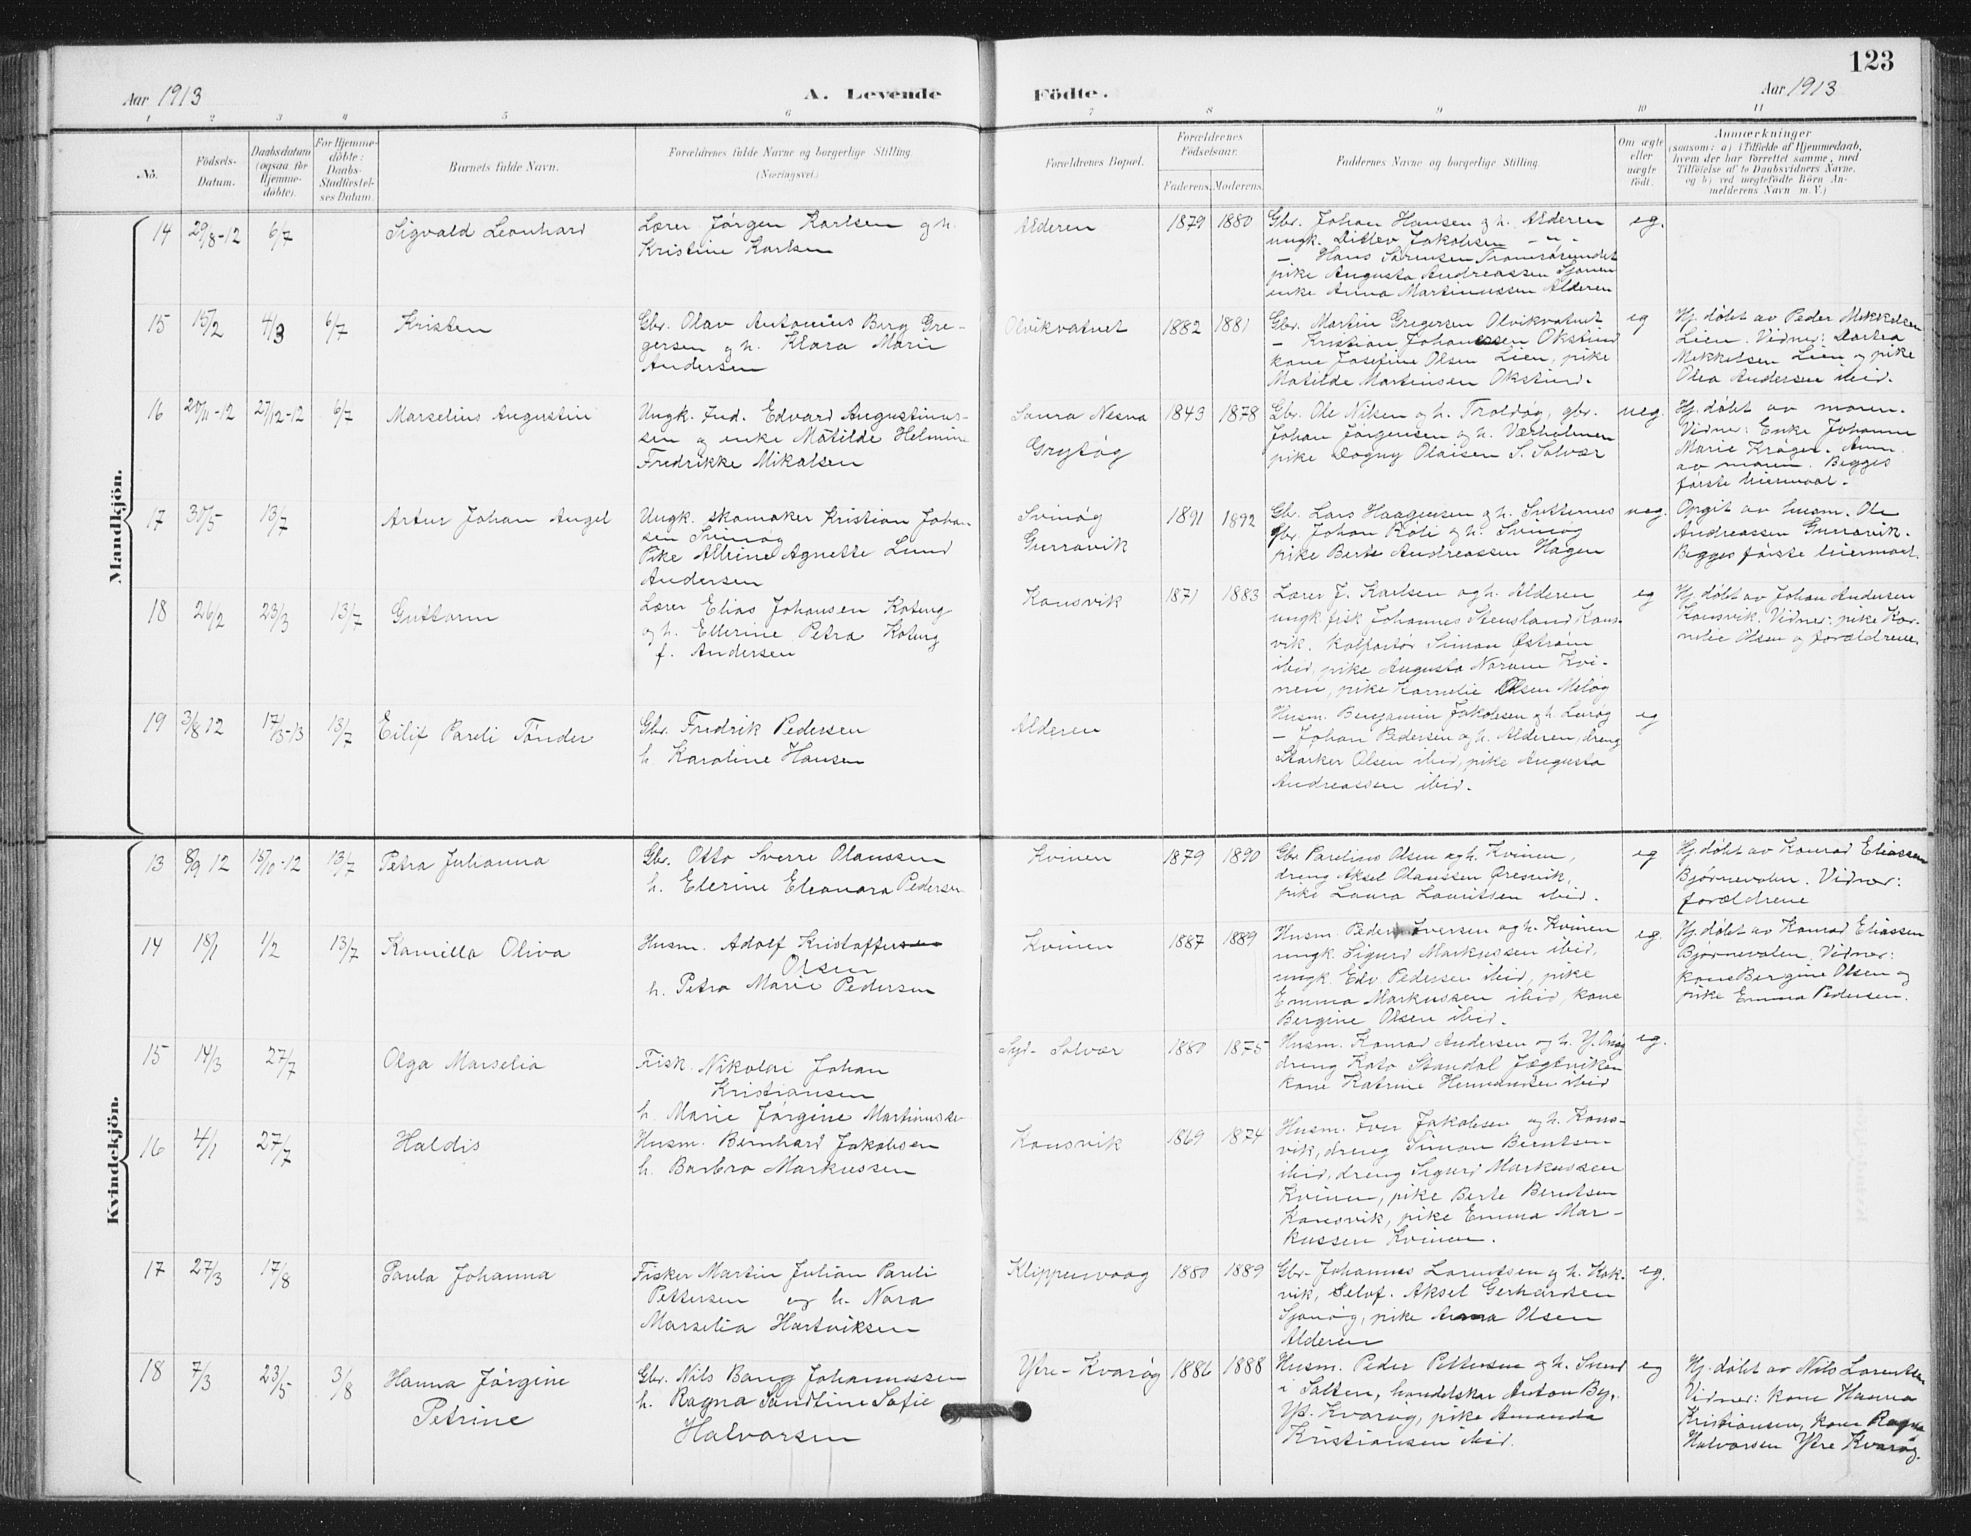 123
Aar 1913 A. Levende Födte. Aar 1913
1 2 3 4 5 6 7 8 9 10 11
No. Födsels-Datum. Daabsdatum (ogsaa for Hjemmedöbte). For Hjemmedöbte: Daabs-Stadfæstelses Datum. Barnets fulde Navn. Forældrenes fulde Navne og borgerlige Stilling (Næringsvei.) Forældrenes Bopæl. Forældrenes Födselsaar. Faderens. Moderens. Faddernes Navne og borgerlige Stilling. Om ægte eller uægte födt. Anmærkninger
(saasom: a) i Tilfælde af Hjemmedaab,
hvem der har forrettet samme, med
Tilföielse af to Daabsvidners Navne,
og b) ved uægtefödte Börn Anmelderens Navn m. V.)
Mandkjön.
14 29/8-12 6/7 Sigvald Leonhard
Lærer Jørgen Karlsen og h.
Kristine Karlsen
Alderen 1879 1880
Gbr. Johan Hansen og h. Alderen
ungk. Ditlev Jakobsen - " -
- Hans Sørensen Tromsøsundet
pike Augusta Andreassen Sjonen
enke Anna Martinussen Alderen
eg.
15 15/2 4/3 6/7 Kristen
Gbr. Olav Antonius Berg Gre-
gersen og h. Klara Marie
Andersen
Olvikvatnet 1882 1881
Gbr. Martin Gregersen Olvikvatnet
- Kristian Johanessen Okstind
kone Josefine Olsen Lien, pike
Matilde Martinsen Okstind.
eg
Hj. døbt av Peder Mikkelsen
Lien. Vidner: Dortea
Mikkelsen Lien og pike
Olea Andersen ibid.
16 20/11-12 27/12-12 6/7 Marselius Augustin
Ungk. Ind. Edvard Augustinus-
sen og enke Matilde Helmine
Fredrikke Mikalsen
Saura Nesna
Grytøg
1843 1878
Gbr. Ole Nilsen og h. Troldøg, gbr.
Johan Jørgensen og h. Værholmen
pike Dagny Olaisen S. Solvær
ueg.
Hj. døbt av moren.
Vidne: Enke Johanne
Marie Krøger. Anm.
av moren. Begges
første leiermaal.
17 30/5 13/7 Artur Johan Angel
Ungk. skomaker Kristian Johan-
sen Svinøg
Pike Albine Agnette Lund
Andersen
Svinøg
Gurravik
1891 1892
Gbr. Lars Haagensen og h. Setternes
gbr. Johan Røli og h. Svinøg
pike Berte Andreassen Hagen
ueg.
Opgit av husm. Ole
Andreassen Gurravik.
Begges første leiermaal.
18 26/2 23/3 13/7 Guttorm
Lærer Elias Johansen Koteng
og h. Ellerine Petra Koteng
f. Andersen
Konsvik 1871 1883
Lærer J. Karlsen og h. Alderen
ungk. fisk. Johannes Stensland Kons-
vik. kolportør Simon Østrøm
ibid, pike Augusta Norum Kvi-
nen, pike Kornelie Olsen Meløg
eg
Hj. døbt av Johan Andersen
Konsvik. Vidner: pike Kor-
nelie Olsen og forældrene.
19 3/8 12 17/3-13 13/7 Eilif Pareli Tønder
Gbr. Fredrik Pedersen
h. Karoline Hansen
Alderen
Husm. Benjamin Jakobsen og h. Lurøg
- Johan Pedersen og h. Alderen, dreng
Starker Olsen ibid, pike Augusta
Andreassen ibid.
eg
Kvindekjön.
13 8/9 12 15/10-12 13/7 Petra Julianna
Gbr. Otto Sverre Olaussen
h. Elerine Eleonora Pedersen
Kvinen 1879 1890
Gbr. Parelius Olsen og h. Kvinen,
dreng Aksel Olaussen Øresvik,
pike Laura Lauritsen ibid.
eg
Hj. døbt av Konrad Eliassen
Bjørnevolen. Vidner:
forældrene
14 18/1 1/2 13/7 Kamilla Oliva
Husm. Adolf Kristoffersen
Olsen
h. Petra Marie Pedersen
Kvinen 1887 1889
Husm. Peder Iversen og h. Kvinen
ungk. Sigurd Markussen ibid,
ungk. Edv. Pedersen ibid, pike
Emma Markussen ibid, kone
Bergine Olsen ibid.
eg.
Hj. døbt av Konrad Eliassen
Bjørnevolen. Vidner:
kone Bergine Olsen og
pike Emma Pedersen.
15 14/3 27/7 Olga Marselia
Fisk. Nikolai Johan
Kristiansen
h. Marie Jørgine Martinussen
Syd-Solvær 1880 1875
Husm. Konrad Andersen og h. Y.
dreng Kato Standal Jægtviken
kone Katrine Hermansen ibid
eg.
16 4/1 27/7 Haldis
Husm. Bernhard Jakobsen
h. Barbro Markussen
Konsvik 1869 1874
Husm. Iver Jakobsen og h. Kons-
vik, dreng Simon Berntsen
ibid, dreng Sigurd Markussen
Kvinen, pike Berte Berntsen
Konsvik, pike Emma Mar-
kussen Kvinen.
17 27/3 17/8 Paula Johanna
Fisker Martin Julian Pareli
Pettersen og h. Nora
Marselia Hartviksen
Klippenvaag 1880 1889
Gbr. Johannes Lorentsen og h. Kok-
vik, Selvf. Aksel Gerhardsen
Sjonøg, pike Anna Olsen
Alderen
eg.
18 7/3 23/5 3/8 Hanna Jørgine
Petrine
Gbr. Nils Bang Johannessen
h. Ragna Sandtine Sofie
Halvorsen
Ytre-Kvarøg 1886 1888
Husm. Peder Pettersen og h. Sund
i Salten, handelskar Anton By,
Yt. Kvarøg, pike Amanda
Kristiansen ibid.
eg
Hj. døbt av Nils Lorentsen
Vidner: kone Hanna
Kristiansen, kone Ragna
Halvorsen Ytre Kvarøg.